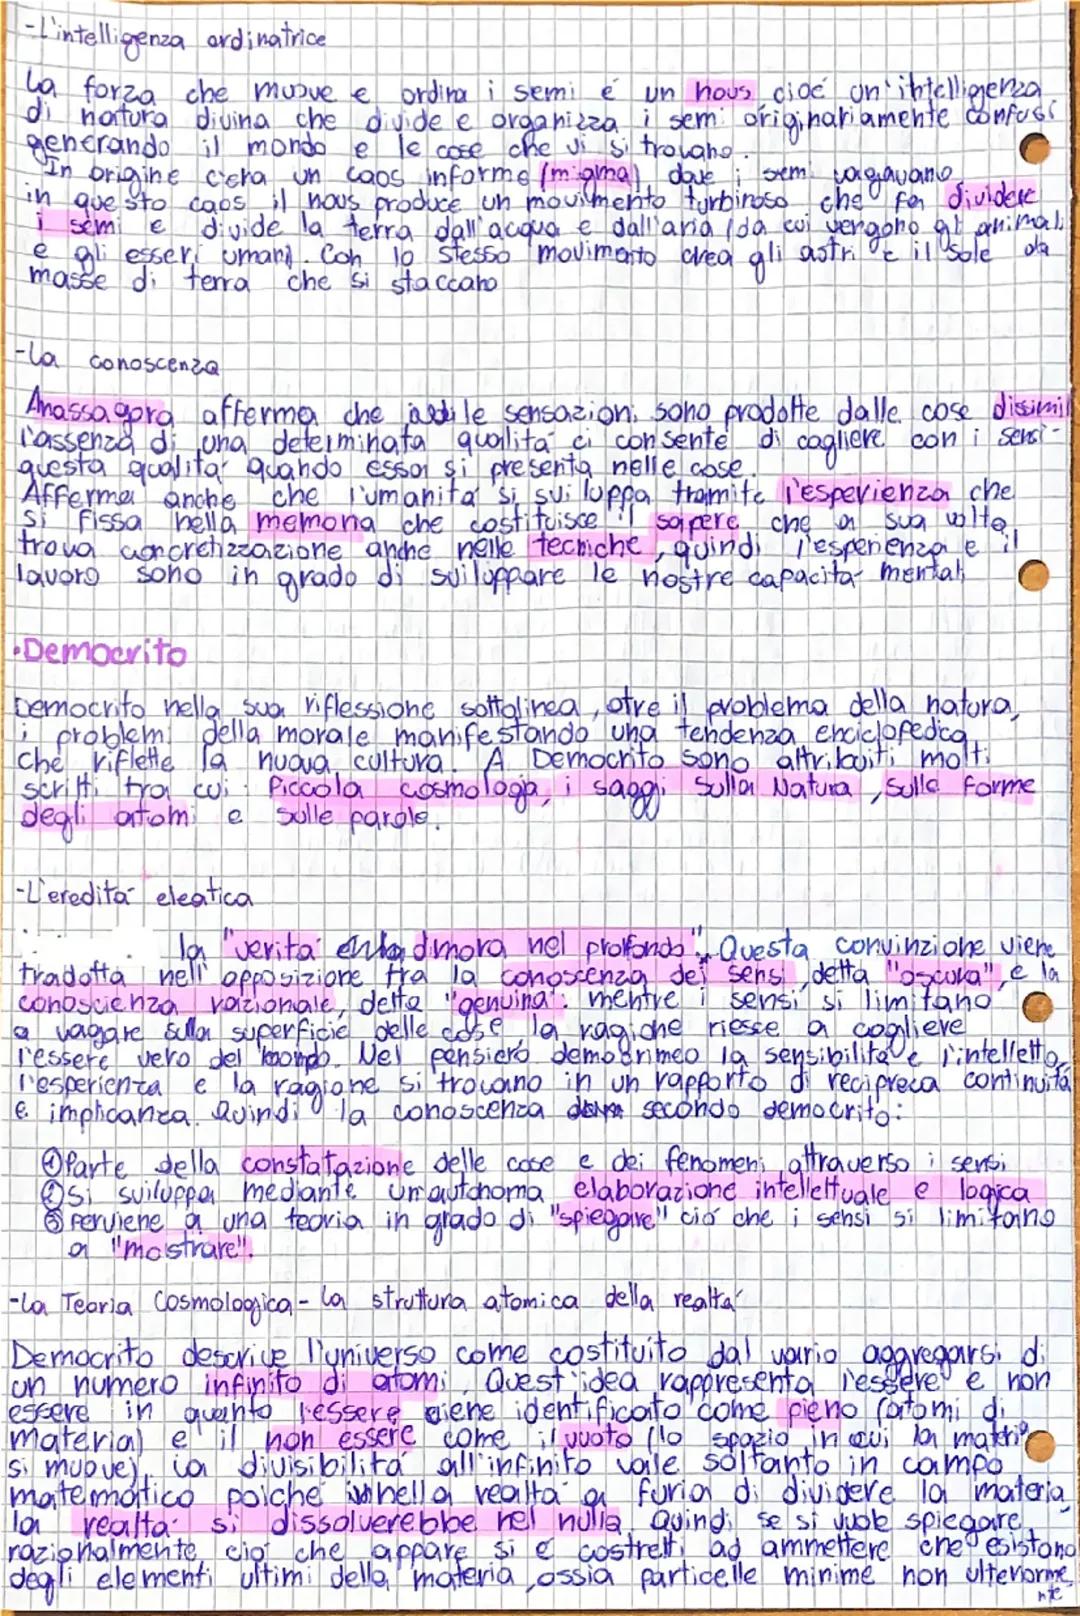 -L'intelligenza ordinatrice
La forza che muove e ordina i semi é un nous cioé un'intelligenza
di natura divina che divide e organizza i semi originariamente confusi
generando il mondo e le cose che vi si trovano.
In origine c'era un caos informe (migma) dove i semi vagavano,
in questo caos il nous produce un movimento turbinoso che fa dividere
i semi e divide la terra dall'acqua e dall'aria (da cui vengono gli animali
e gli esseri umani). Con lo stesso movimento crea gli astri e il sole da
masse di terra che si staccano
-La conoscenza
Anassagora afferma che le sensazioni sono prodotte dalle cose dissimili
l'assenza di una determinata qualità ci consente di cogliere con i sensi
questa qualità quando essa si presenta nelle cose.
Afferma anche che l'umanità si sviluppa tramite l'esperienza che
si fissa nella memoria che costituisce il sapere che a sua volta
trova concretizzazione anche nelle tecniche, quindi l'esperienza e il
lavoro sono in grado di sviluppare le nostre capacità mentali
•Democrito
Democrito nella sua riflessione sottolinea, otre il problema della natura,
i problemi della morale manifestando una tendenza enciclopedica
che riflette la nuova cultura. A Democrito sono attribuiti molti
scritti tra cui: Piccola cosmologia, i saggi Sulla Natura, Sulle forme
degli atomi e Sulle parole.
-L'eredità eleatica
la "verità dimora nel profondo". Questa convinzione viene
tradotta nell'opposizione tra la conoscenza dei sensi, detta "oscura", e la
conoscienza razionale, detta "genuina": mentre i sensi si limitano
a vagare sulla superficie delle cose la ragione riesce a cogliere
l'essere vero del mondo. Nel pensiero democrimeo la sensibilità e l'intelletto,
l'esperienza e la ragione si trovano in un rapporto di reciproca continuità
e implicanza. Quindi la conoscenza secondo democrito:
① Parte della constatazione delle cose e dei fenomeni attraverso i sensi
② Si sviluppa mediante un'autonoma elaborazione intellettuale e logica
③ Perviene a una teoria in grado di "spiegare" ció che i sensi si limitano
a "mostrare".
-La Teoria Cosmologica - La struttura atomica della realtà
Democrito descrive l'universo come costituito dal vario aggregarsi di
un numero infinito di atomi. Quest'idea rappresenta l'essere e non
essere in quanto l'essere viene identificato come pieno (atomi di
materia) e il non essere come il vuoto (lo spazio in cui la matria
si muove). La divisibilità all'infinito vale soltanto in campo
matematico poiché nella realtà a furia di dividere la materia,
la realtà si dissolverebbe nel nulla. Quindi se si vuole spiegare
razionalmente ció che appare si é costretti ad ammettere che esistono
degli elementi ultimi della materia, ossia particelle minime non ulteriorme
nte